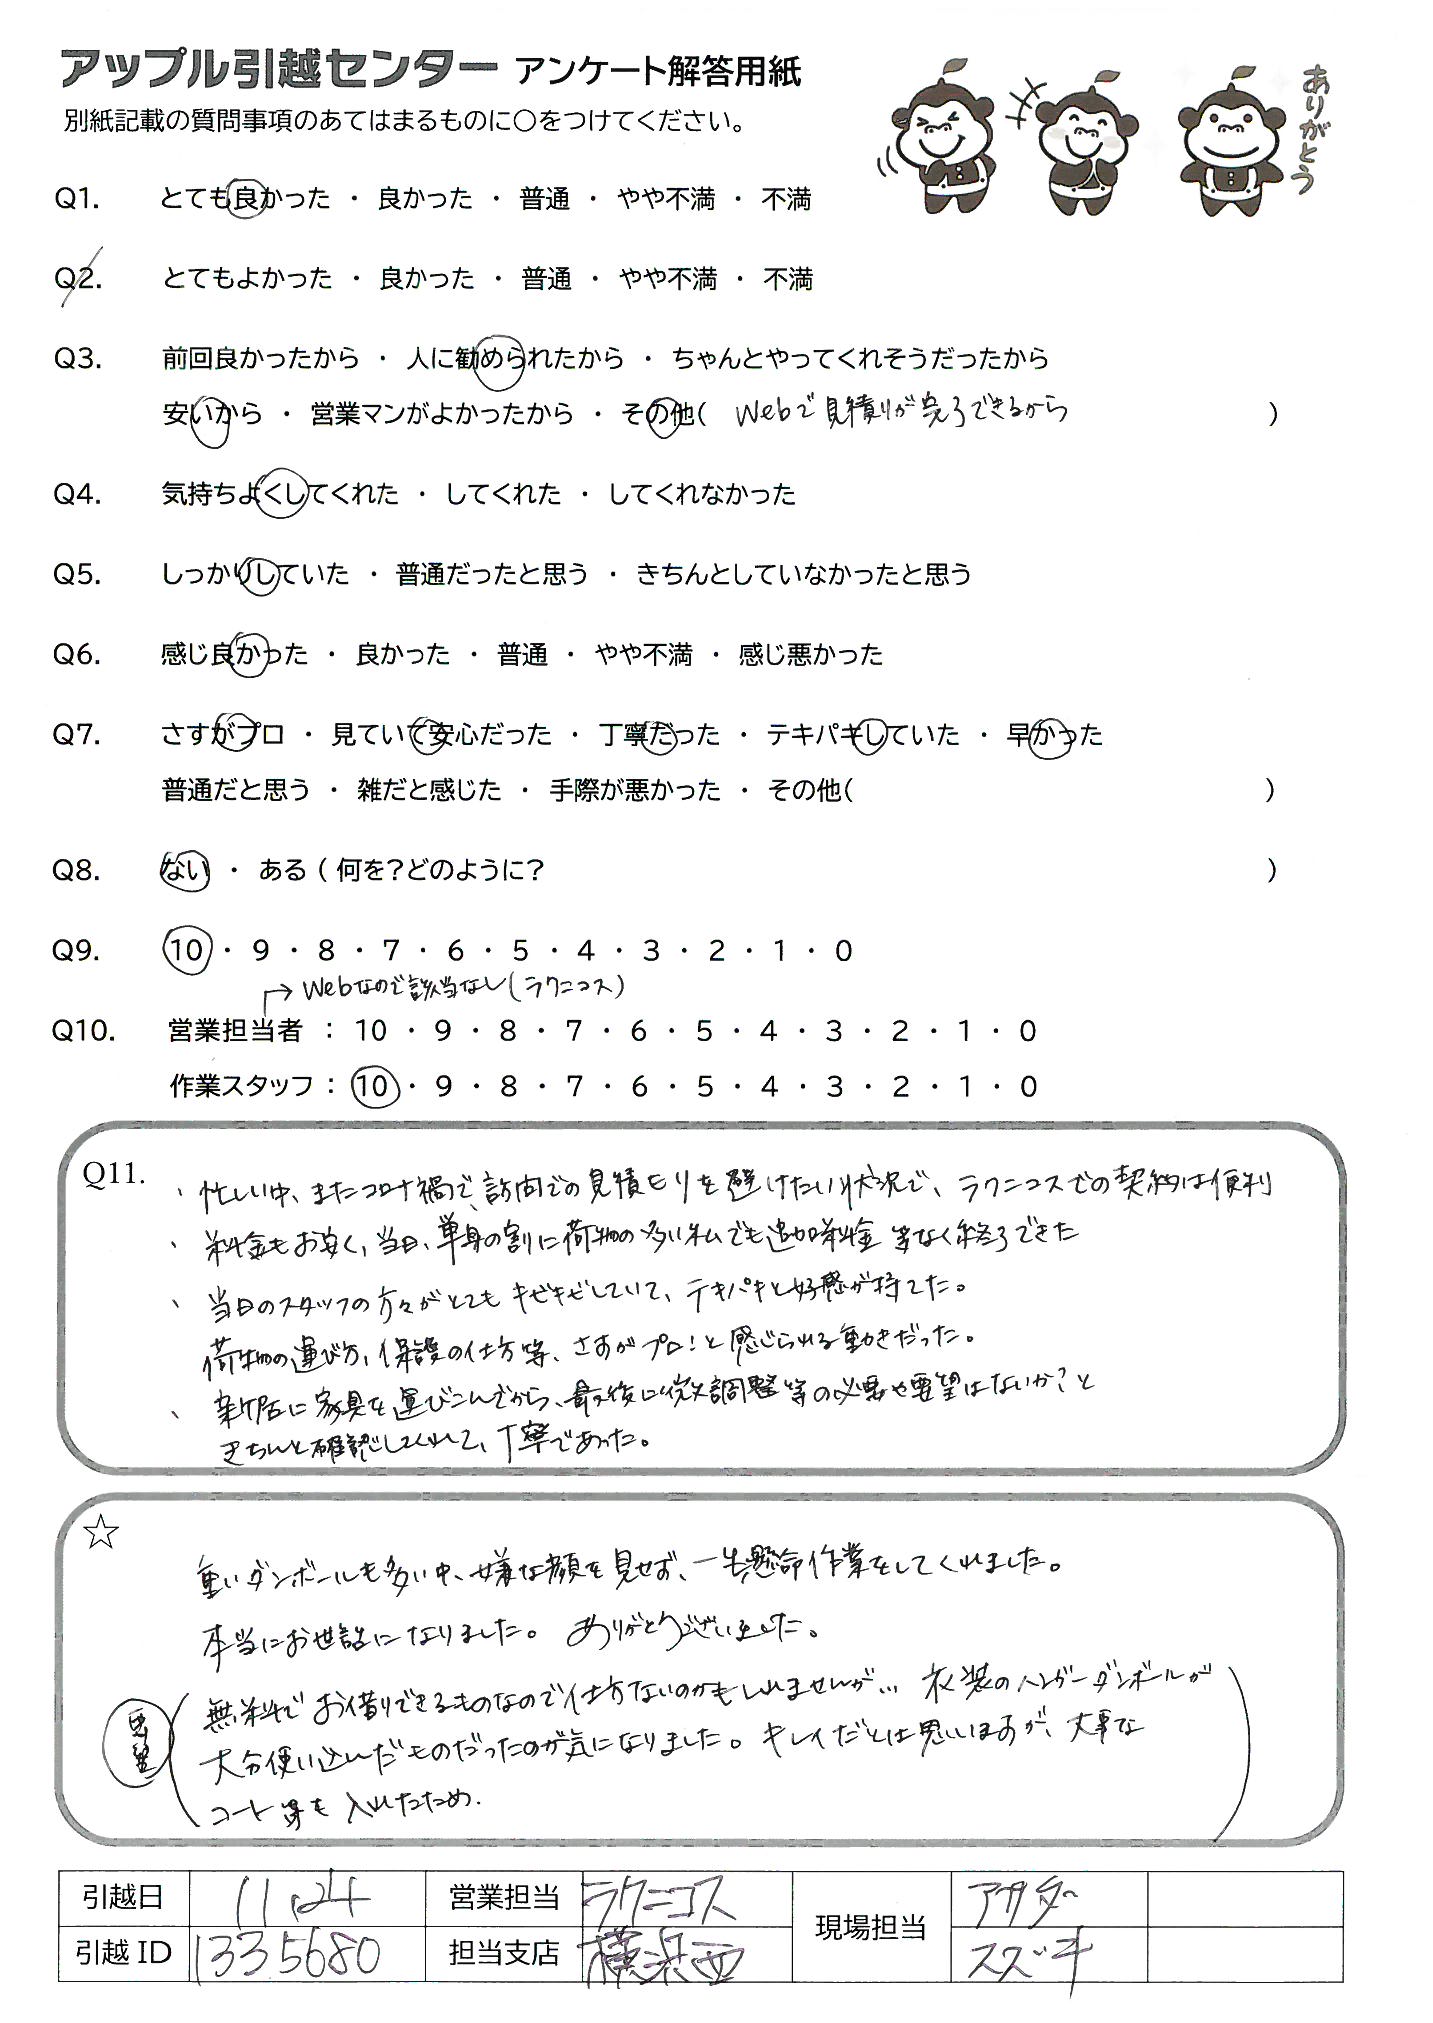 アップル引越センター アンケート解答用紙
別紙記載の質問事項のあてはまるものに○をつけてください。
ありがとう
Q1. とても良かった ・ 良かった ・ 普通 ・ やや不満 ・ 不満
Q2. とてもよかった ・ 良かった ・ 普通 ・ やや不満 ・ 不満
Q3. 前回良かったから ・ 人に勧められたから ・ ちゃんとやってくれそうだったから
安いから ・ 営業マンがよかったから ・ その他( Webで見積りが完了できるから )
Q4. 気持ちよくしてくれた ・ してくれた ・ してくれなかった
Q5. しっかりしていた ・ 普通だったと思う ・ きちんとしていなかったと思う
Q6. 感じ良かった ・ 良かった ・ 普通 ・ やや不満 ・ 感じ悪かった
Q7. さすがプロ ・ 見ていて安心だった ・ 丁寧だった ・ テキパキしていた ・ 早かった
普通だと思う ・ 雑だと感じた ・ 手際が悪かった ・ その他( )
Q8. ない ・ ある ( 何を?どのように? )
Q9. 10 ・ 9 ・ 8 ・ 7 ・ 6 ・ 5 ・ 4 ・ 3 ・ 2 ・ 1 ・ 0
→ Webなので該当なし(ラクニコス)
Q10. 営業担当者 : 10 ・ 9 ・ 8 ・ 7 ・ 6 ・ 5 ・ 4 ・ 3 ・ 2 ・ 1 ・ 0
作業スタッフ : 10 ・ 9 ・ 8 ・ 7 ・ 6 ・ 5 ・ 4 ・ 3 ・ 2 ・ 1 ・ 0
Q11. 、忙しい中、またコロナ禍で、訪問での見積もりを避けたい状況で、ラクニコスでの契約は便利
、料金もお安く、当日、単身の割に荷物の多い私でも追加料金等なく終了できた
、当日のスタッフの方々がとてもキビキビしていて、テキパキと好感が持てた。
荷物の運び方、保護の仕方等、さすがプロ!と感じられる動きだった。
、新居に家具を運びこんでから、最後に微調整等の必要や要望はないか?と
きちんと確認してくれて、丁寧であった。
☆
重いダンボールも多い中、嫌な顔を見せず、一生懸命作業をしてくれました。
本当にお世話になりました。 ありがとうございました。
要望 (無料でお借りできるものなので仕方ないのかもしれませんが... 衣装のハンガーダンボールが
大分使い込んだものだったのが気になりました。キレイだとは思いますが、大事な
コート等も入れたため.)
引越日 11.24 営業担当 ラクニコス 現場担当 アサダ
引越 ID 1335680 担当支店 横浜西 スズキ